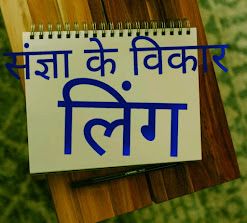 संज्ञा के विकार
लिंग